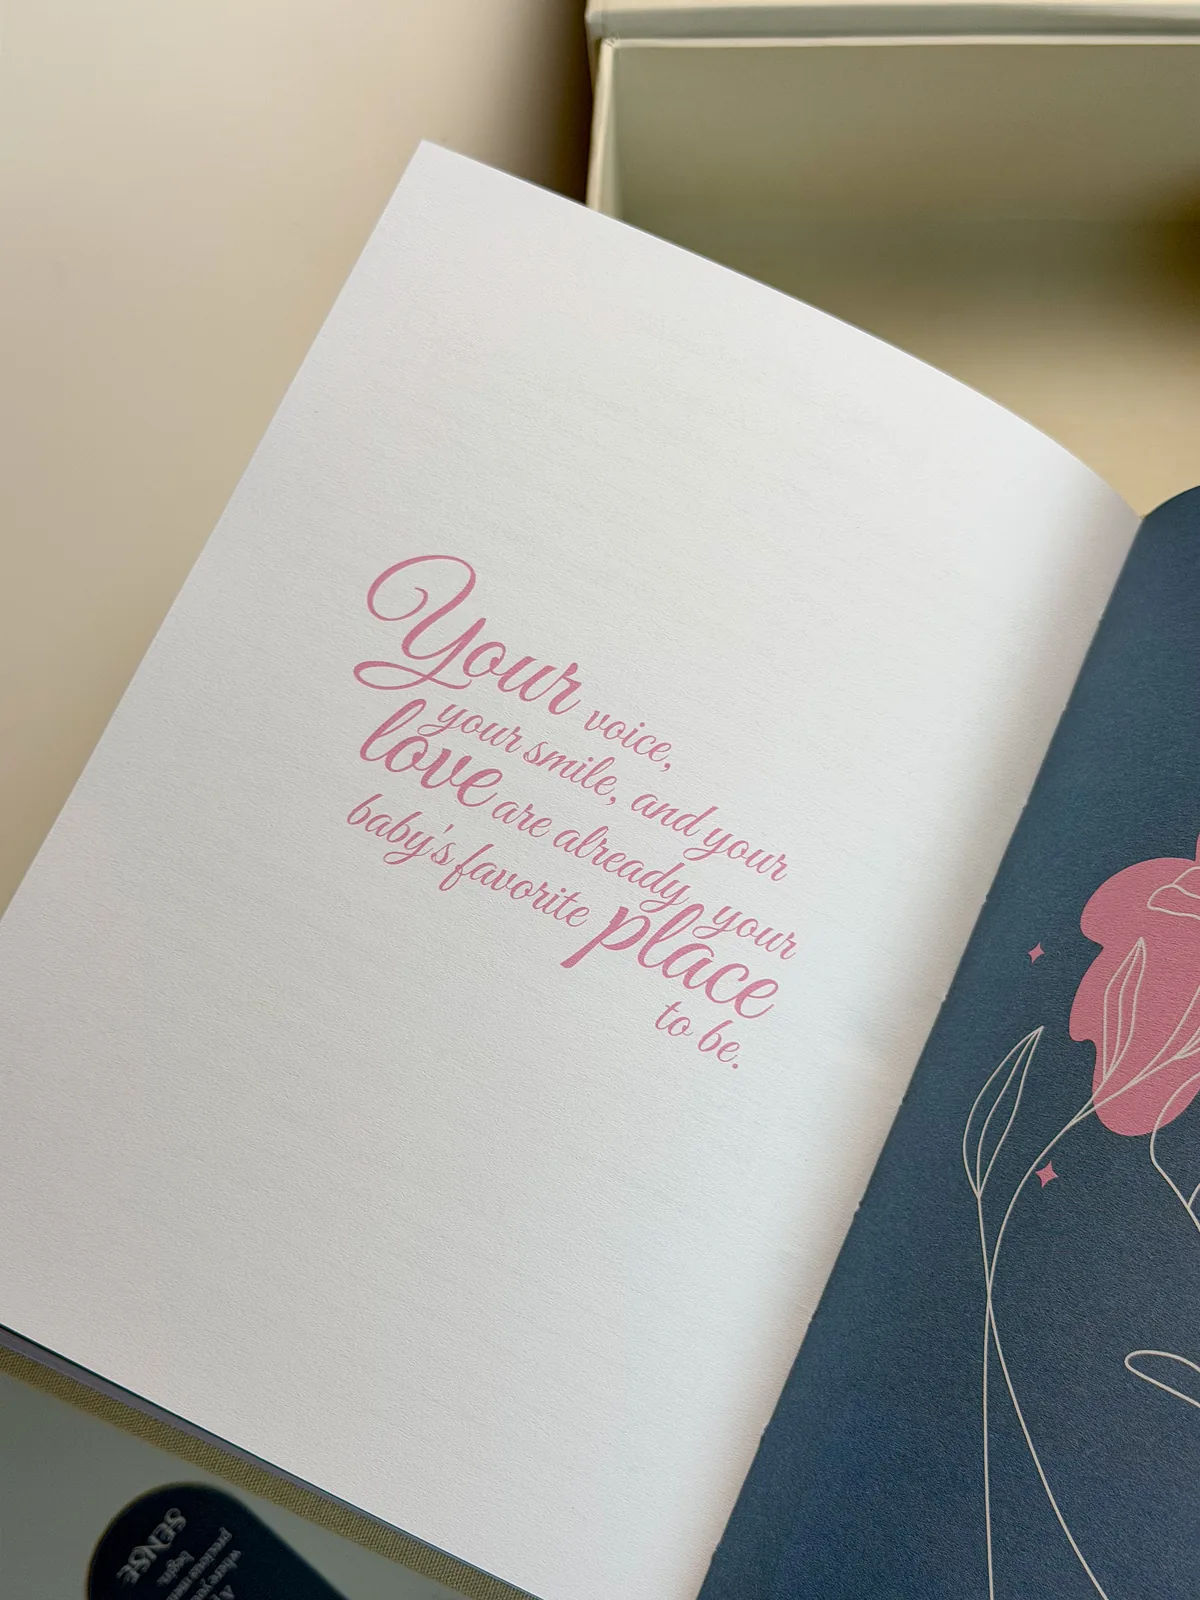 Your voice,
your smile, and your
love are already your
baby's favorite place
to be.
SENSE
where you
precious
begin.